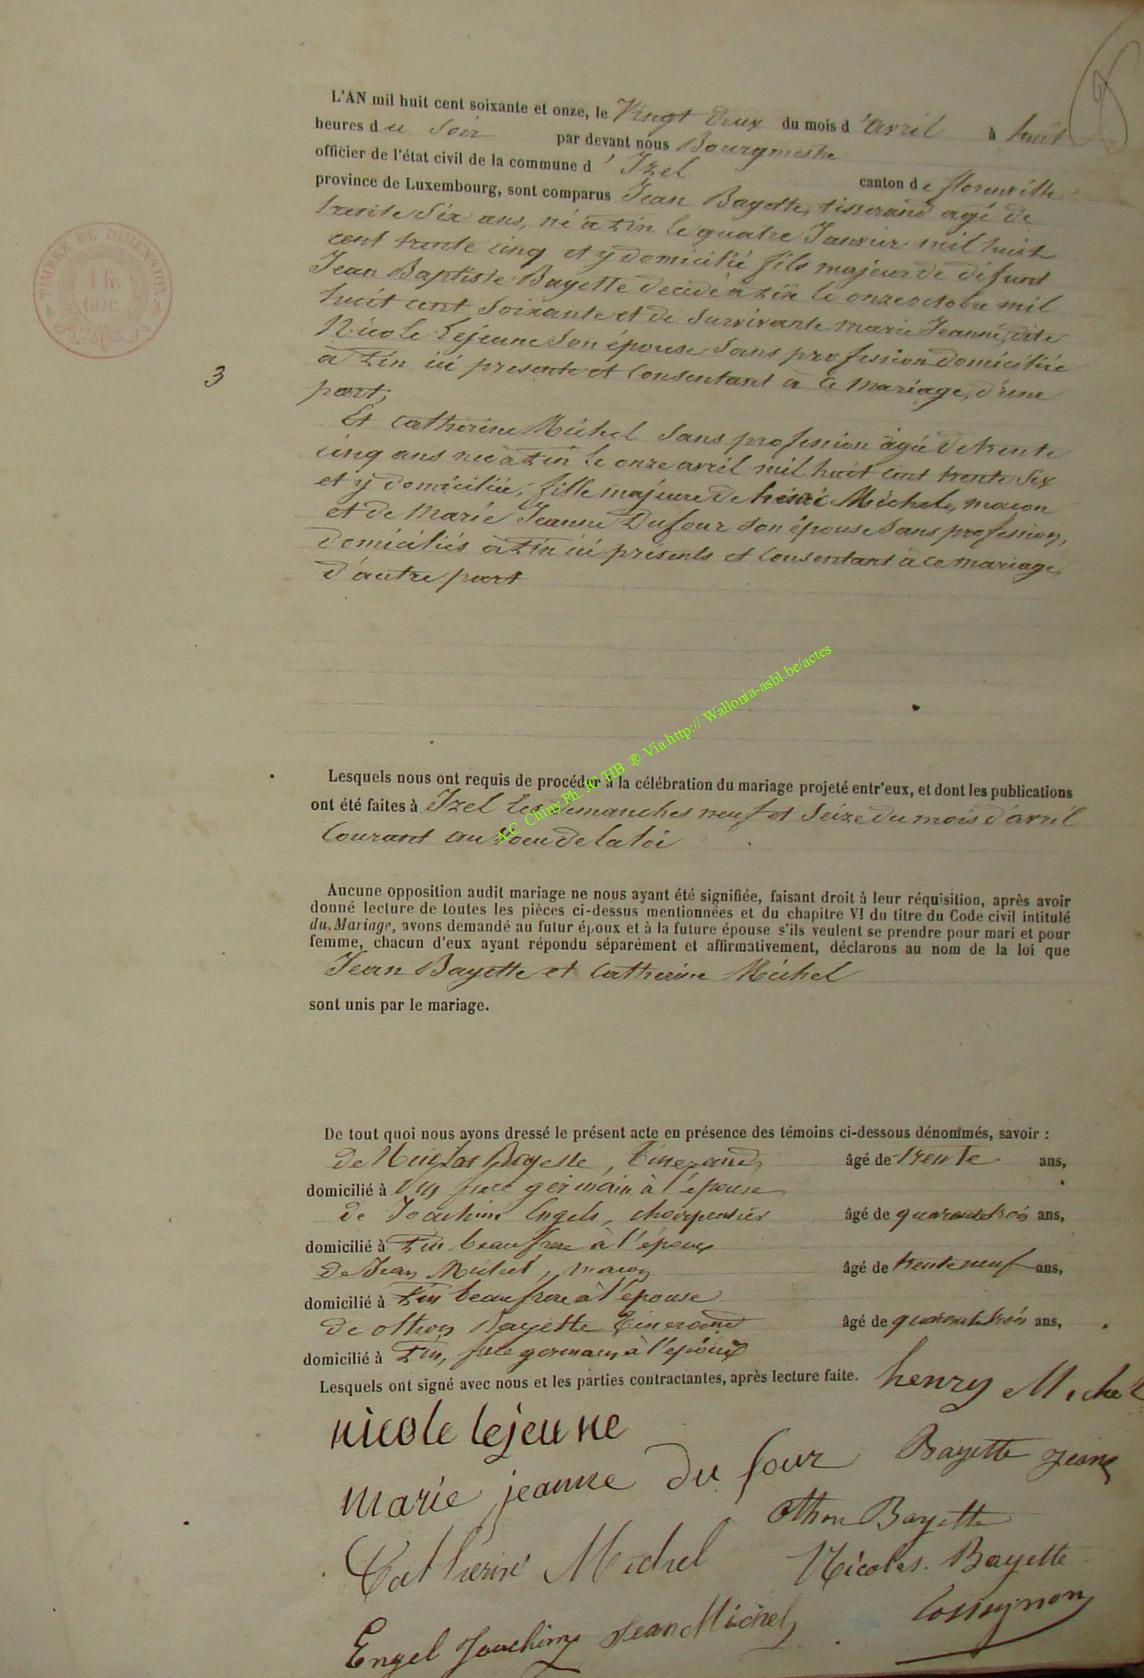 L'AN mil huit cent soixante et onze, le Vingt deux du mois d'avril à huit
heures du Soir par devant nous Bourgmestre
officier de l'état civil de la commune d'Izel canton de florenville
province de Luxembourg, sont comparus Jean Bayette, tisserand agé de
trente Six ans, né à Pin le quatre Janvier mil huit
cent trente cinq et y domicilié fils majeur de défunt
Jean Baptiste Bayette décédé à Pin le onze octobre mil
huit cent soixante et de Survivante marie Jeanne, dite
Nicole Lejeune Son épouse Sans profession domiciliée
à Pin ici presente et Consentant à ce mariage, d'une
part;
Et Catherine Michel Sans profession agée de trente
cinq ans née à Pin le onze avril mil huit cent trente Six
et y domiciliée, fille majeure de henri Michel, maçon
et de Marie Jeanne Dufour son épouse Sans profession,
domiciliés à Pin ici présents et Consentant à ce mariage,
d'autre part
3
Lesquels nous ont requis de procéder à la célébration du mariage projeté entr'eux, et dont les publications
ont été faites à Izel les dimanches neuf et Seize du mois d'avril
Courant au voeu de la loi
A.C. Chiny Ph. JC/HB ® Via http:// Wallonia-asbl.be/actes
Aucune opposition audit mariage ne nous ayant été signifiée, faisant droit à leur réquisition, après avoir
donné lecture de toutes les pièces ci-dessus mentionnées et du chapitre VI du titre du Code civil intitulé
du Mariage, avons demandé au futur époux et à la future épouse s'ils veulent se prendre pour mari et pour
femme, chacun d'eux ayant répondu séparément et affirmativement, déclarons au nom de la loi que
Jean Bayette et Catherine Michel
sont unis par le mariage.
De tout quoi nous avons dressé le présent acte en présence des témoins ci-dessous dénommés, savoir :
de Nicolas Bayette, Tisserand, âgé de trente ans,
domicilié à Pin frere germain à l'épouse
de Joachim Engels, charpentier âgé de quarante trois ans,
domicilié à Pin beau frere à l'époux
de Jean Michel, maçon âgé de trente neuf ans,
domicilié à Pin beau frere à l'épouse
de othon Bayette Tisserand âgé de quarante trois ans,
domicilié à Pin, frere germain à l'époux
Lesquels ont signé avec nous et les parties contractantes, après lecture faite. henry Michel
nicole lejeune
Bayette jean
marie jeanne du four
Othon Bayette
Catherine Michel Nicolas Bayette
Engel Joachim Jean Michel
TIMBRE DE DIMENSION